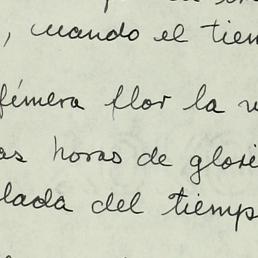 , cuando el tiem
fímera flor la v
as horas de glori
lada del tiemp